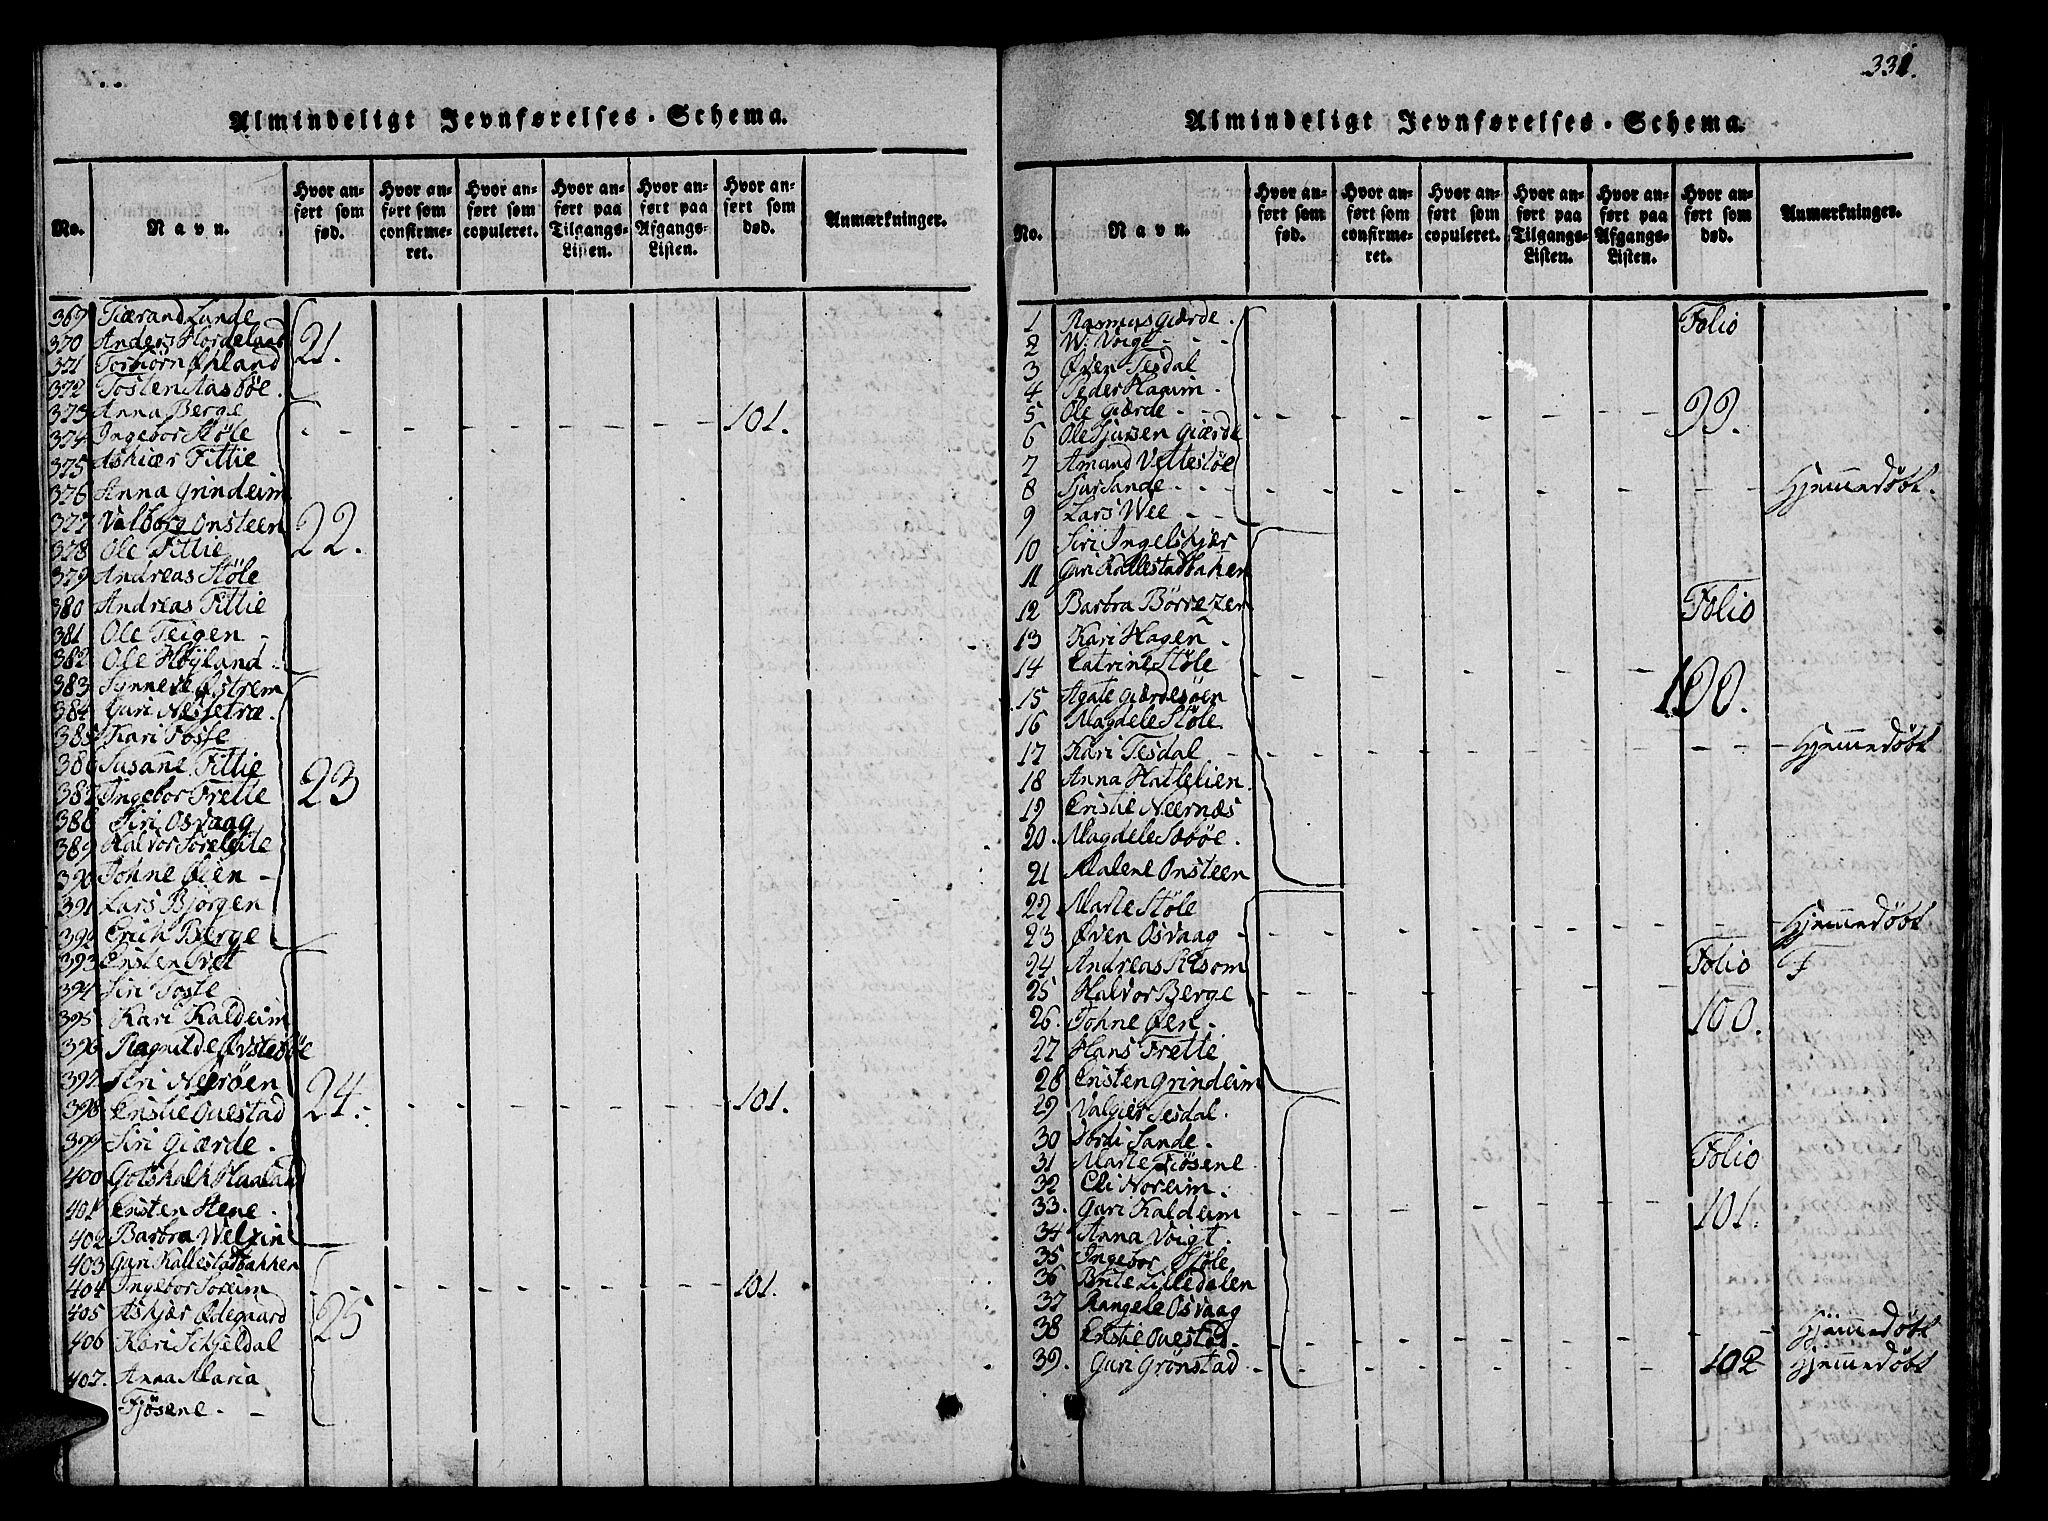 Almindeligt Jevnførelses-Schema.
No.
Navn.
Hvor an-
ført som
fød.
Hvor an-
ført som
confirme-
ret.
Hvor an-
ført som
copuleret.
Hvor an-
ført paa
Tilgangs-
Listen.
Hvor an-
ført paa
Afgangs-
Listen.
Hvor an-
ført som
død.
Anmærkninger.
369 Tiærand Lunde
370 Anders Hordeland 21.
371 Torbiörn Øhland
372 Tosten Aasböe.
373 Anna Berge
374 Ingebor Stöle - - - - - - - 101.
375 Askiær Fittie
376 Anna Grindeim
377 Valborg Onsteen 22.
378 Ole Fittie
379 Andreas Stöle
380 Andreas Fittie
381 Ole Teigen -
382 Ole Höyland -
383 Synneve Østrem
384 Guri Næssetræ
385 Kari Foss
386 Susane Fittie
387 Ingebor Frette 23
388 Siri Osvaag
389 Halvor Soreleite
390 Johne Øien -
391 Lars Biörgen
392 Erich Berge
393 Cristen Fret
394 Siri Foste
395 Kari Kaldeim
396 Ragnilde Østeböe
397 Siri Neeröen 24.
398 Cristie Questad - - - - - - 101.
399 Siri Giærde.
400 Gotskalk Haaland
401 Cristen Stene.
402 Barbra Welzin
403 Guri Kallestadbakken
404 Ingebor Soreim - - - - - - 101.
405 Askjær Ødegaard 25
406 Kari Skjeldal
407. Anna Maria
Fjösene. - -
331.
Almindeligt Jevnførelses-Schema.
No.
Navn.
Hvor an-
ført som
fød.
Hvor an-
ført som
confirme-
ret.
Hvor an-
ført som
copuleret.
Hvor an-
ført paa
Tilgangs-
Listen.
Hvor an-
ført paa
Afgangs-
Listen.
Hvor an-
ført som
død.
Anmærkninger.
1 Rasmus Giærde. Folio
2 W: Voigt - - -
3 Øven Tesdal
4 Peder Haavim.
5 Ole Giærde - - - - - - - 99.
6 Ole Sjursen Giærde
7 Amand Vettestöe
8 Sjur Sande - - - - - - - Hjemmedöbt.
9 Lars Wee - -
10 Siri Ingelskjær
11 Guri Kallestadbakken
12 Barbra Börrezen Folio
13 Kari Hagen
14 Catrine Stöle - - - - - 100.
15 Agate Giærdesöen
16 Magdele Stöle.
17 Kari Tesdal - - - - - - - Hjemmedöbt
18 Anna Hatlelien.
19 Cristie Neernæs
20. Magdele Sæböe.
21 Malene Onsteen
22 Marte Stöle
23 Øven Osvaag - - - - - - Hjemmedöbt
24 Andreas Risom Folio F
25 Halvor Berge - - - - -
26. Johne Øen. 100.
27 Hans Frette
28 Cristen Grindeim
29 Valgier Tesdal.
30 Jordi Sande.
31 Marte Fjösene Folio
32 Eli Noreim.
33. Guri Kaldeim - - - - - 101.
34 Anna Voigt.
35 Ingebor Stöle
36 Brite Lilledalen
37 Rangele Osvaag
38 Cristie Questad. - - - - - - Hjemmedöbt
39. Guri Grönstad - - - - - 102 Hjemmedöbt